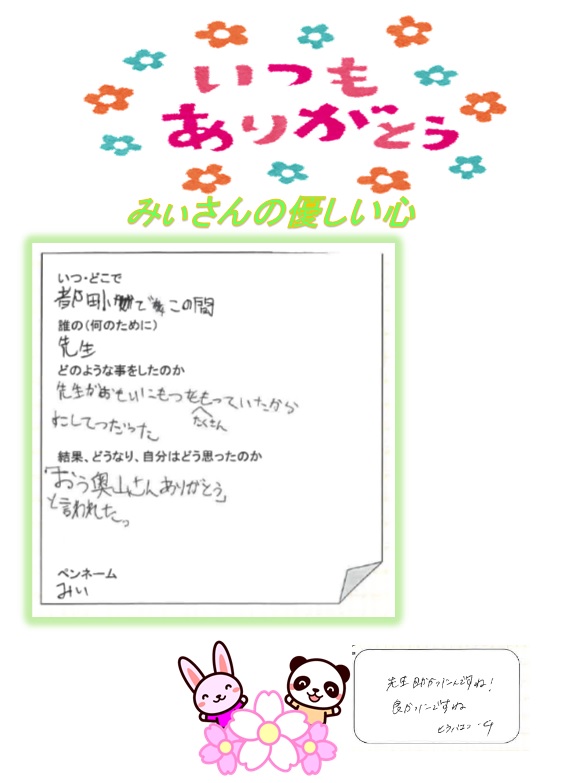 いつも
ありがとう
みぃさんの優しい心
いつ・どこで
都田小でこの間
誰の(何のために)
先生
どのような事をしたのか
先生がおもいにもつをたくさんもっていたから
にしてつだった
結果、どうなり、自分はどう思ったのか
「おう奥山さんありがとう」
と言われた。
ペンネーム
みぃ
先生助かったんですね!
良かったですね